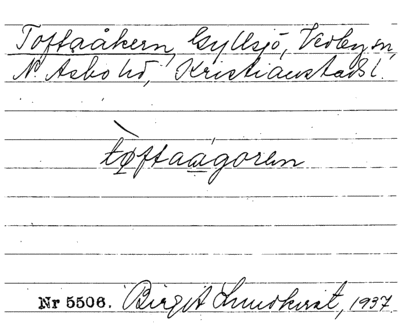 Toftaåkern, Gyllsjö, Vedby sn,
N. Asbo hd, Kristianstads l.
tøftaagoren
Nr 5506. Birgit Lundkvist, 1937